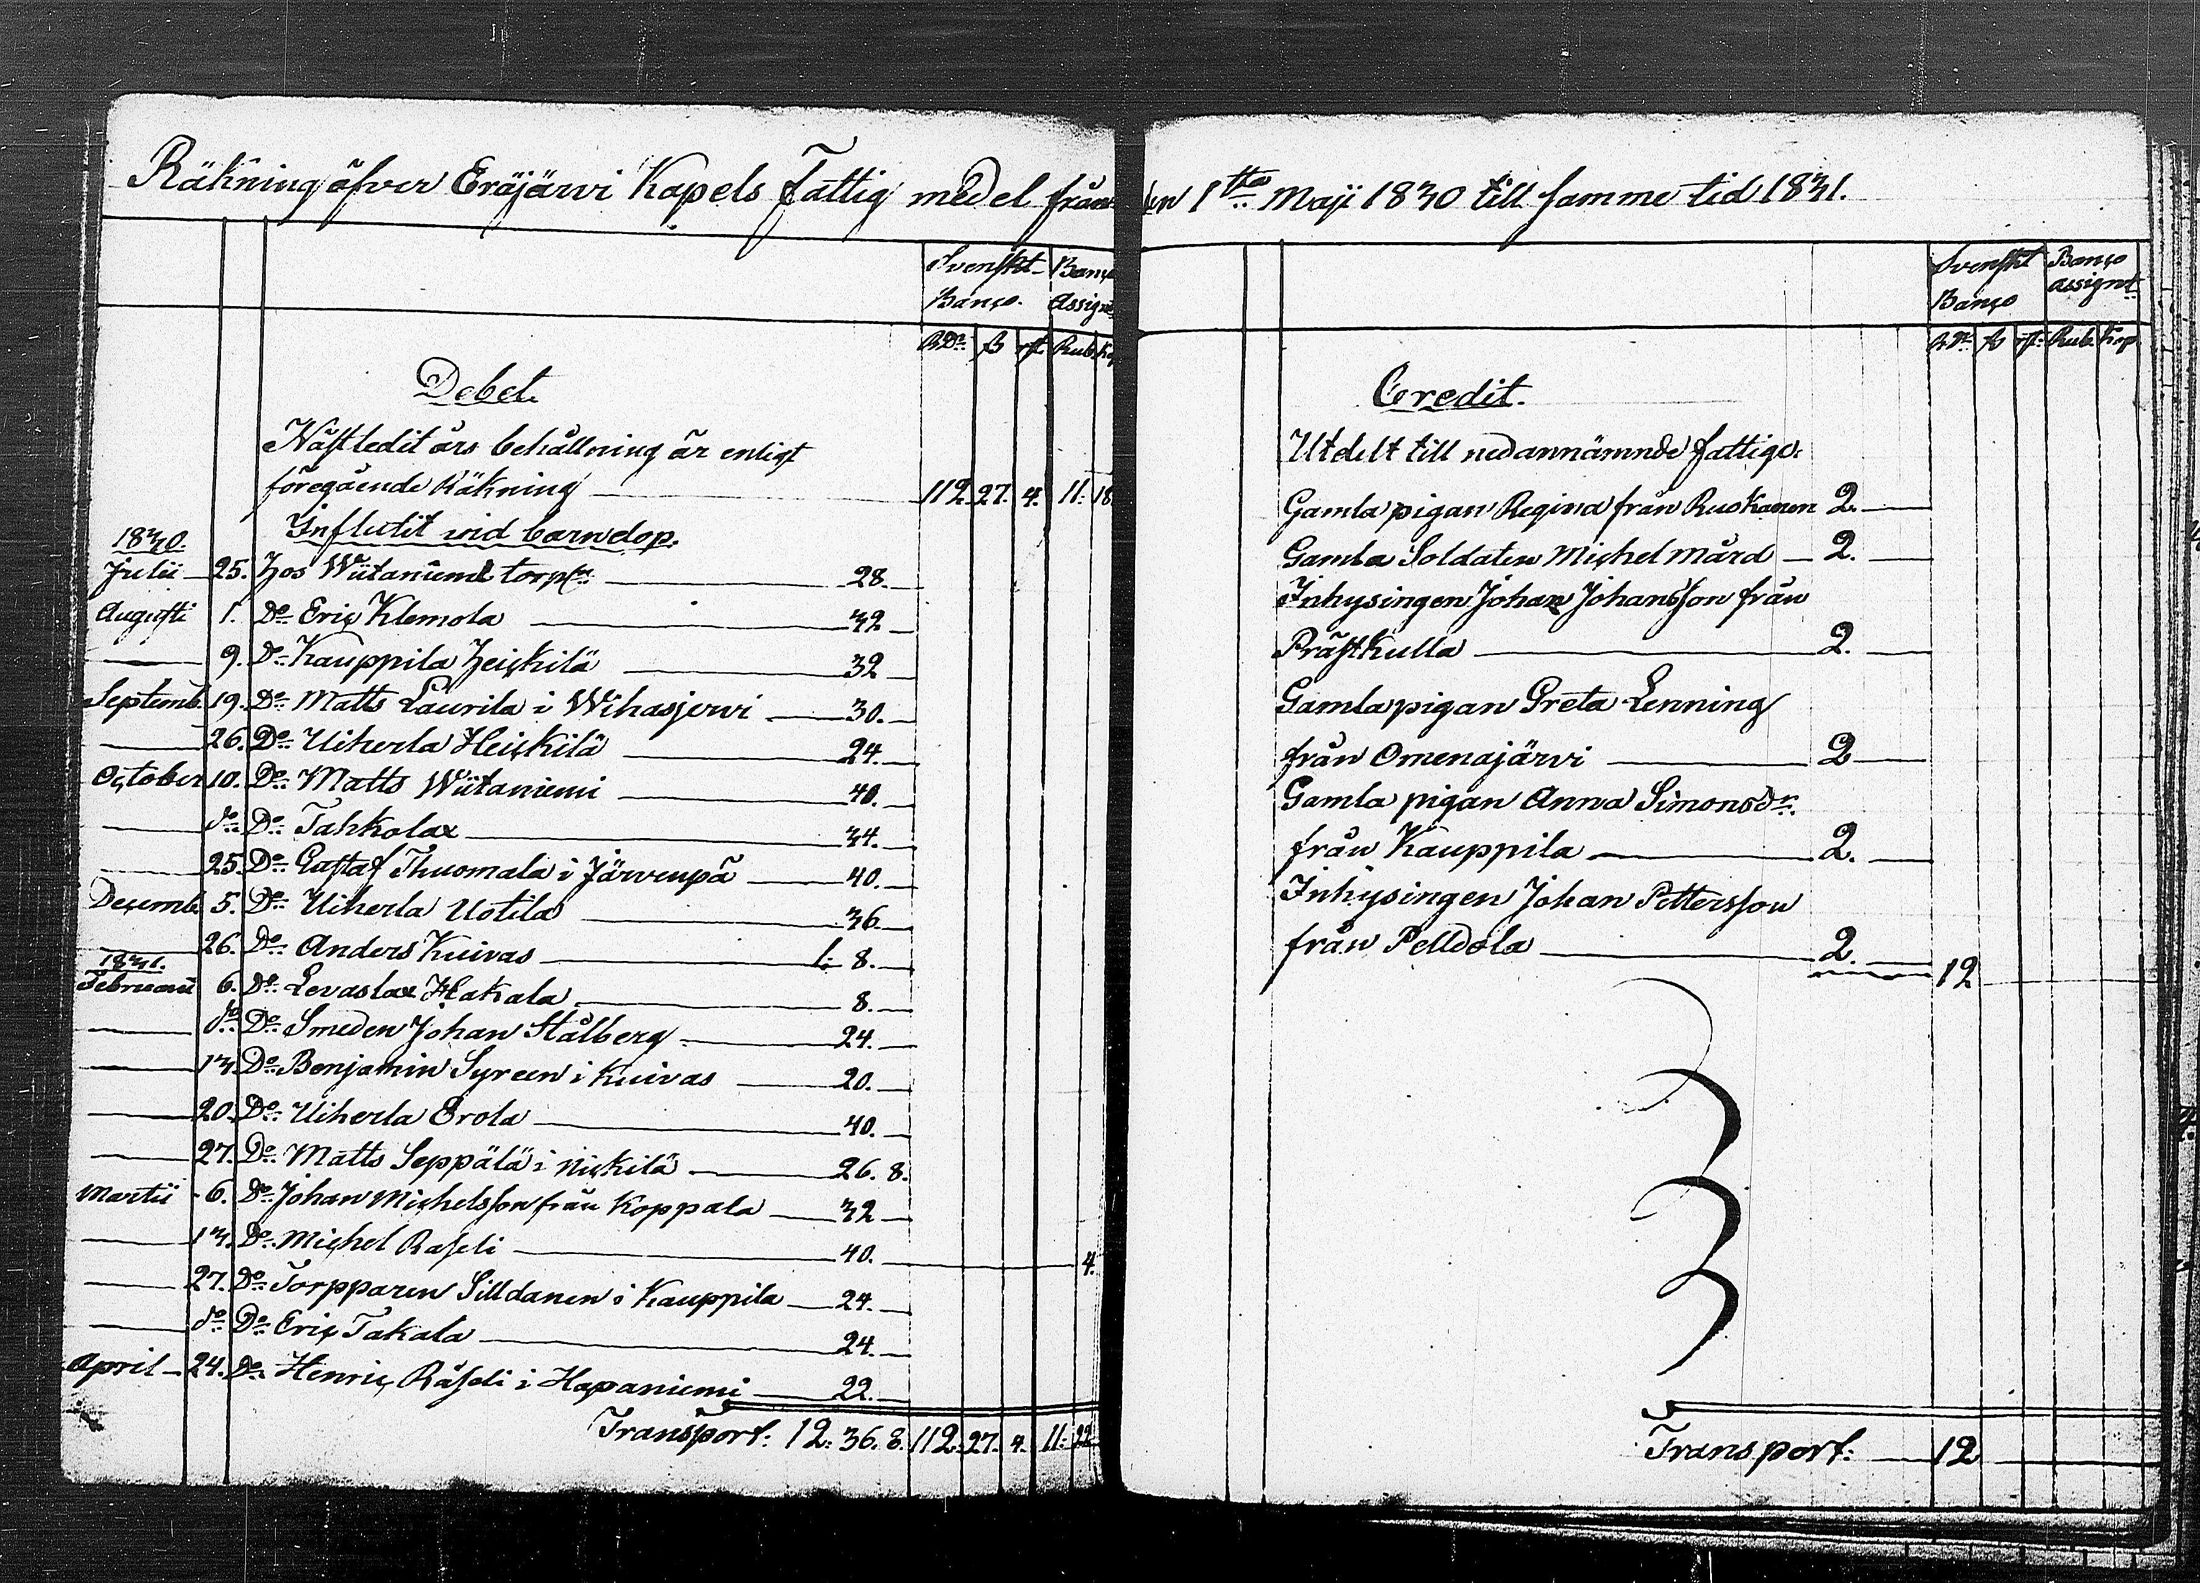 Räkning öfver Eräjärvi Kapels Fattig medel från den 1sta Maji 1830 till samme tid 1831.
Svenskt Banço. Banço Assign
RDr ß rst. Rub. Kop
Debet.
Nästledit års behållning är enligt
föregående Räkning 112 27. 4. 11. 18
Influtit vid barndop.
1830.
Julii 25. Hos Wiitaniemi torp 28.
Augusti 1. Do Eriç Klemola 32
9. Do Kauppila Heiçkilä 32
Septemb. 19. Do Matts Laurila i Wihasjervi 30.
26. Do Uiherla Heiçkilä 24.
October 10. Do Matts Wiitaniemi 40.
do Do Tahkola 34.
25. Do Gustaf Thuomala i Järvenpä 40.
Deçemb. 5. Do Uiherla Uotila 36.
26. Do Anders Kuivas 1: 8.
1831.
Februarii 6. Do Levaslax Hakala 8.
do Do Smeden Johan Stålberg 24.
13. Do Benjamin Syreen i Kuivas 20.
20. Do Uiherla Erola 40.
27. Do Matts Seppälä i Niçkilä 26. 8.
Martii 6. Do Johan Michelsson från Koppala 32
13. Do Miçhel Raseli 40. 4.
27. Do Torpparen Silldanen i Kauppila 24.
do Do Eriç Takala 24.
April 24. Do Henriç Räseli i Hapaniemi 22.
Transport. 12. 36. 8. 112. 27. 4. 11. 22
Svenskt Banço Banço assignt
RDr ß rst. Rub. Kop
Credit.
Utdelt till nedannämnde fattige.
Gamla pigan Regina från Ruskanen 2.
Gamla Soldaten Miçhel Mård 2.
Inhysingen Johan Johansson från
Prästkulla 2.
Gamla pigan Greta Lenning
från Omenajärvi 2
Gamla pigan Anna Simonsdr.
från Kauppila 2.
Inhysingen Johan Pettersson
från Pelldola 2.
12
Transport. 12